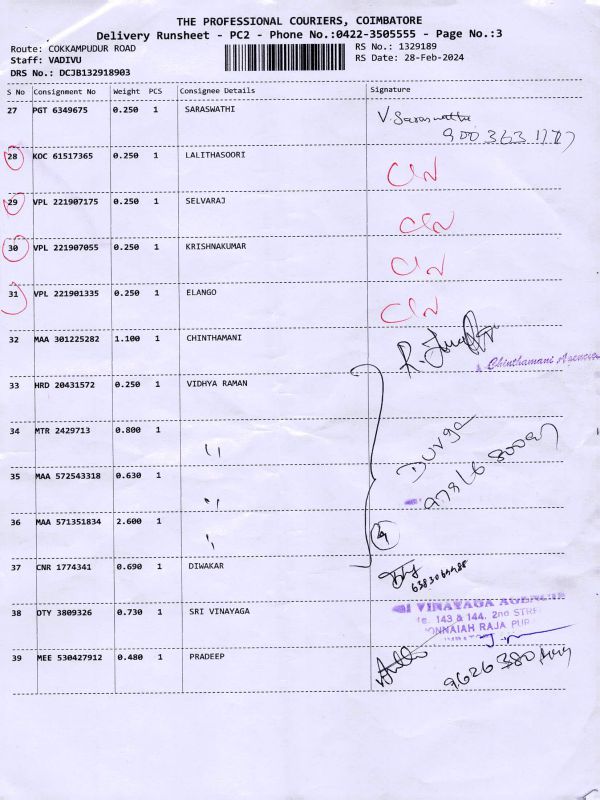 THE PROFESSIONAL COURIERS, COIMBATORE
Delivery Runsheet - PC2 - Phone No.:0422-3505555 - Page No.:3
Route: COKKAMPUDUR ROAD RS No.: 1329189
Staff: VADIVU RS Date: 28-Feb-2024
DRS No.: DCJB132918903
S No Consignment No Weight PCS Consignee Details Signature
27 PGT 6349675 0.250 1 SARASWATHI V. Saraswathi
28 KOC 61517365 0.250 1 LALITHASOORI
29 VPL 221907175 0.250 1 SELVARAJ
30 VPL 221907055 0.250 1 KRISHNAKUMAR
31 VPL 221901335 0.250 1 ELANGO
32 MAA 301225282 1.100 1 CHINTHAMANI
Chinthamani Agencies
33 HRD 20431572 0.250 1 VIDHYA RAMAN
34 MTR 2429713 0.800 1 〃
Durga
35 MAA 572543318 0.630 1 〃
36 MAA 571351834 2.600 1 〃 4
37 CNR 1774341 0.690 1 DIWAKAR
38 DTY 3809326 0.730 1 SRI VINAYAGA
VINAYAGA
143 & 144, 2nd STRE
ONNAIAH RAJA PUR
39 MEE 530427912 0.480 1 PRADEEP